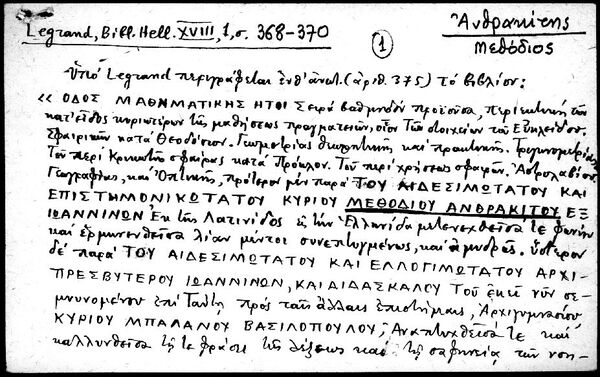 Legrand, Bibl. Hell. XVIII, 1, σ. 368-370
①
Ἀνθρακίτης
Μεθόδιος
Ὑπὸ Legrand περιγράφεται ἐνθ' ἀνωτ. (ἀριθ. 375) τὸ βιβλίον:
«ΟΔΟΣ ΜΑΘΗΜΑΤΙΚΗΣ ΗΤΟΙ Σειρὰ βαθμηδὸν προϊοῦσα, περιεκτικὴ τῶν
κατ' εἶδος κυριωτέρων τῆς μαθήσεως πραγματειῶν, οἷον τῶν στοιχείων τοῦ Εὐκλείδου.
Σφαιρικῶν κατὰ Θεοδόσιον. Γεωμετρίας θεωρητικῆς καὶ πρακτικῆς. Τριγωνομετρίας
Τοῦ περὶ Κρικωτῆς σφαίρας κατὰ Πρόκλον. Τοῦ περὶ χρήσεως σφαιρῶν. Ἀστρολαβίου.
Γεωγραφίας, καὶ Ὀπτικῆς, πρότερον μὲν παρὰ ΤΟΥ ΑΙΔΕΣΙΜΩΤΑΤΟΥ ΚΑΙ
ΕΠΙΣΤΗΜΟΝΙΚΩΤΑΤΟΥ ΚΥΡΙΟΥ ΜΕΘΟΔΙΟΥ ΑΝΘΡΑΚΙΤΟΥ ΕΞ
ΙΩΑΝΝΙΝΩΝ Ἐκ τῆς Λατινίδος εἰς τὴν Ἑλληνίδα μετενεχθεῖσά τε φωνὴν
καὶ ἑρμηνευθεῖσα λίαν μέντοι συνεπτυγμένως, καὶ ἀμυδρῶς. ὕστερον
δὲ παρὰ ΤΟΥ ΑΙΔΕΣΙΜΩΤΑΤΟΥ ΚΑΙ ΕΛΛΟΓΙΜΩΤΑΤΟΥ ΑΡΧΙ-
ΠΡΕΣΒΥΤΕΡΟΥ ΙΩΑΝΝΙΝΩΝ, ΚΑΙ ΔΙΔΑΣΚΑΛΟΥ τοῦ ἐκεῖ νῦν σε-
μνυνομένου ἐπὶ ταύτῃ πρὸς ταῖς ἄλλαις ἐπιστήμαις, Ἀρχιγυμνασίου
ΚΥΡΙΟΥ ΜΠΑΛΑΝΟΥ ΒΑΣΙΛΟΠΟΥΛΟΥ, Ἀναπτυχθεῖσά τε καὶ
καλλυνθεῖσα τῇ τε φράσει τῆς λέξεως καὶ τῇ σαφηνείᾳ τῶν νοη-